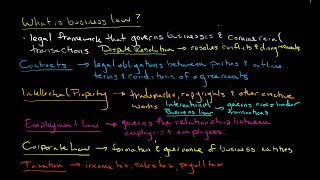 What is business law?
• legal framework that governs businesses & commercial
transactions Dispute Resolution → resolves conflicts & disagreements
Contracts → legal obligations between parties and outline
terms & conditions of agreements
Intellectual Property → trademarks, copyrights & other creative
works International Business Law → governs cross border transactions
Employment Law → governs the relationship between
employers & employees.
Corporate Law → formation & governance of business entities
Taxation → income tax, sales tax, payroll tax